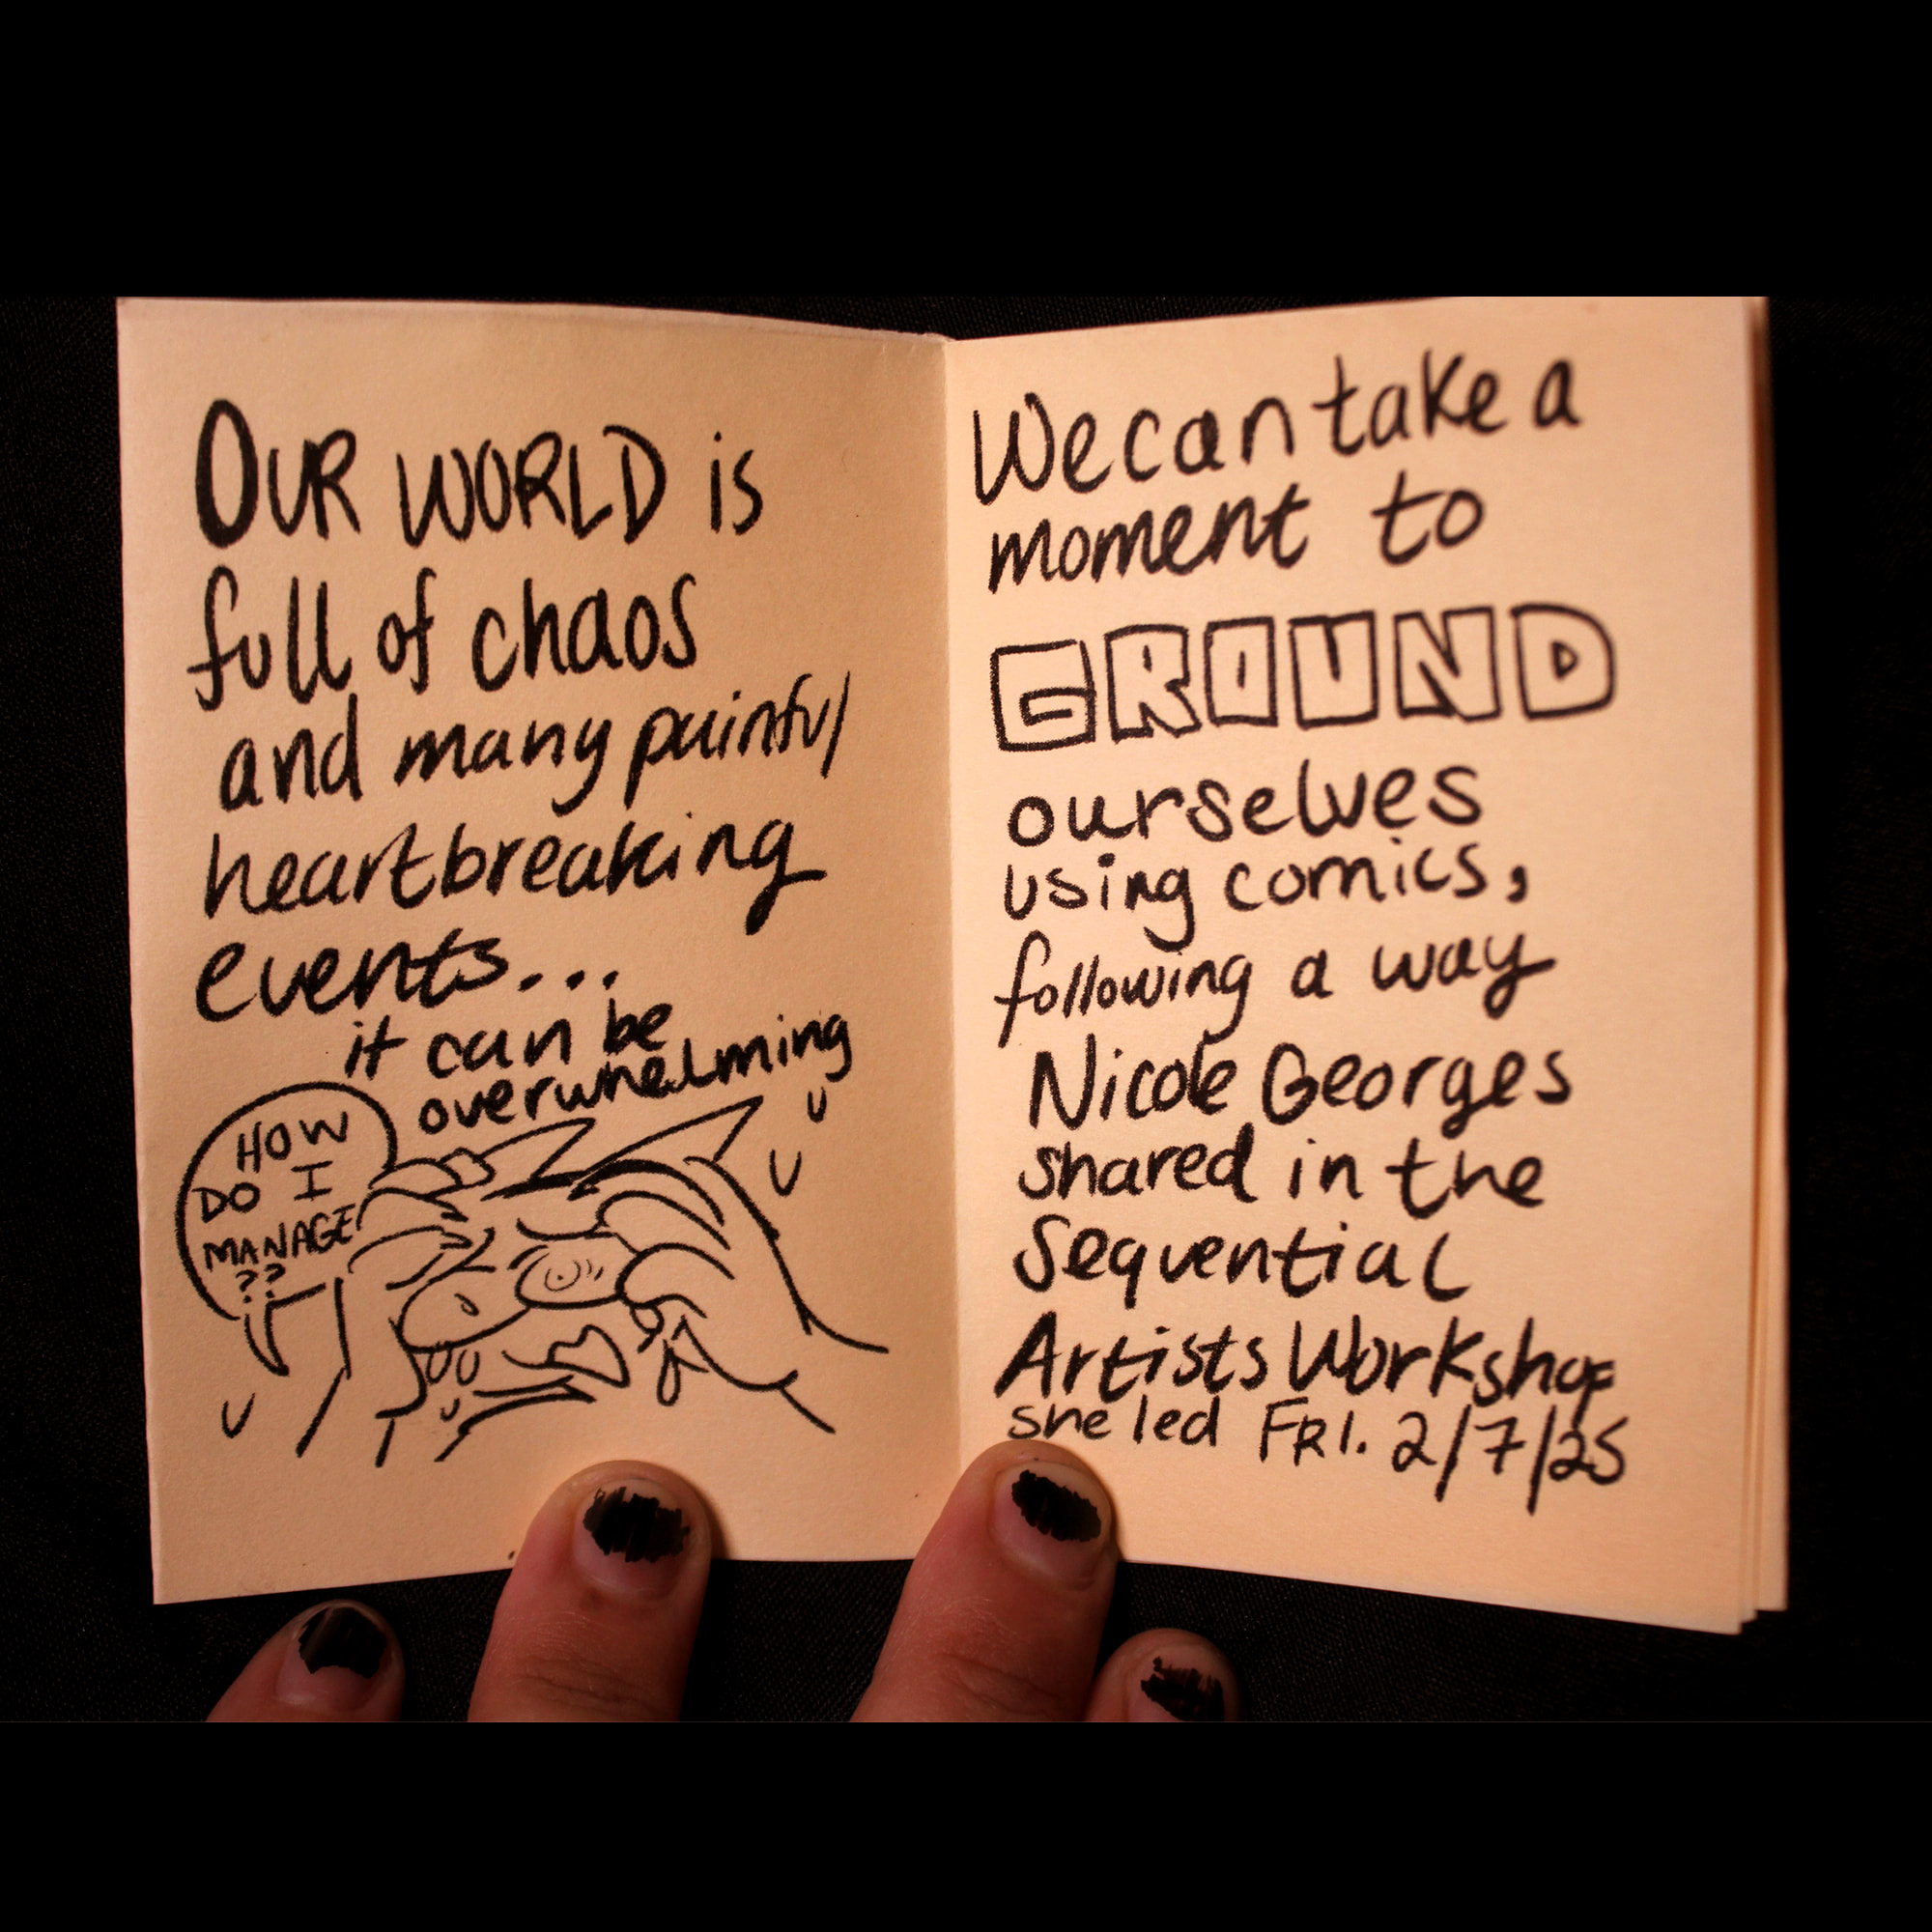 OUR WORLD is
full of chaos
and many painful
heartbreaking
events...
it can be
overwhelming
HOW
DO I
MANAGE
??
We can take a
moment to
GROUND
ourselves
using comics,
following a way
Nicole Georges
shared in the
Sequential
Artists Workshop
she led FRI. 2/7/25